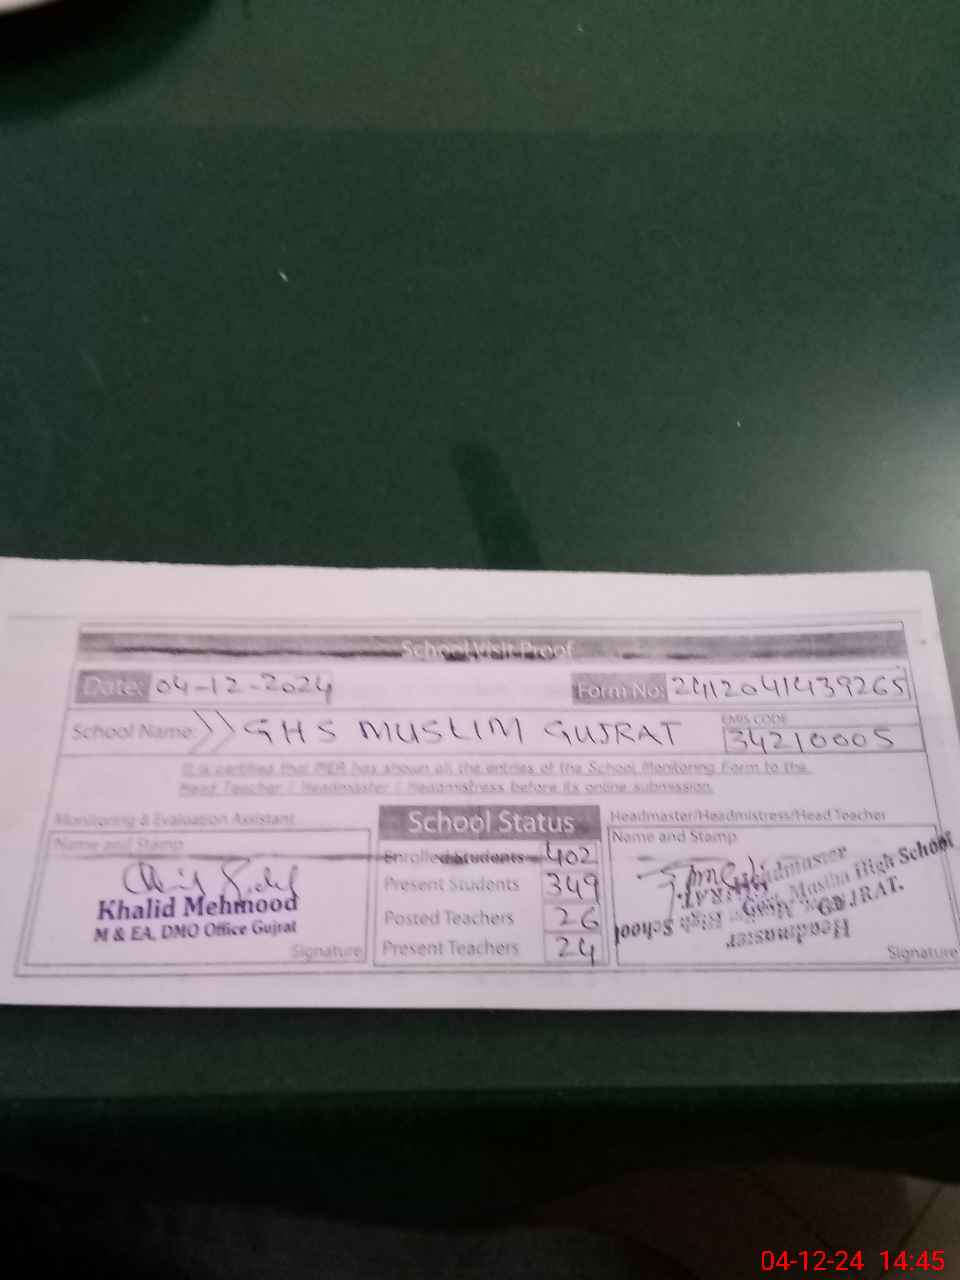 School Visit Proof
Date: 04-12-2024 Form No: 2412041439265
School Name: GHS MUSLIM GUJRAT EMIS CODE 34210005
It is certified that MEA has shown all the entries of the School Monitoring Form to the
Head Teacher / Headmaster / Headmistress before its online submission.
Monitoring & Evaluation Assistant
Name and Stamp
Khalid Mehmood
M & EA, DMO Office Gujrat
Signature
School Status
Enrolled Students 402
Present Students 349
Posted Teachers 26
Present Teachers 24
Headmaster/Headmistress/Head Teacher
Name and Stamp
Headmaster
Govt. Muslim High School
GUJRAT.
Headmaster
High School
Signature
04-12-24 14:45